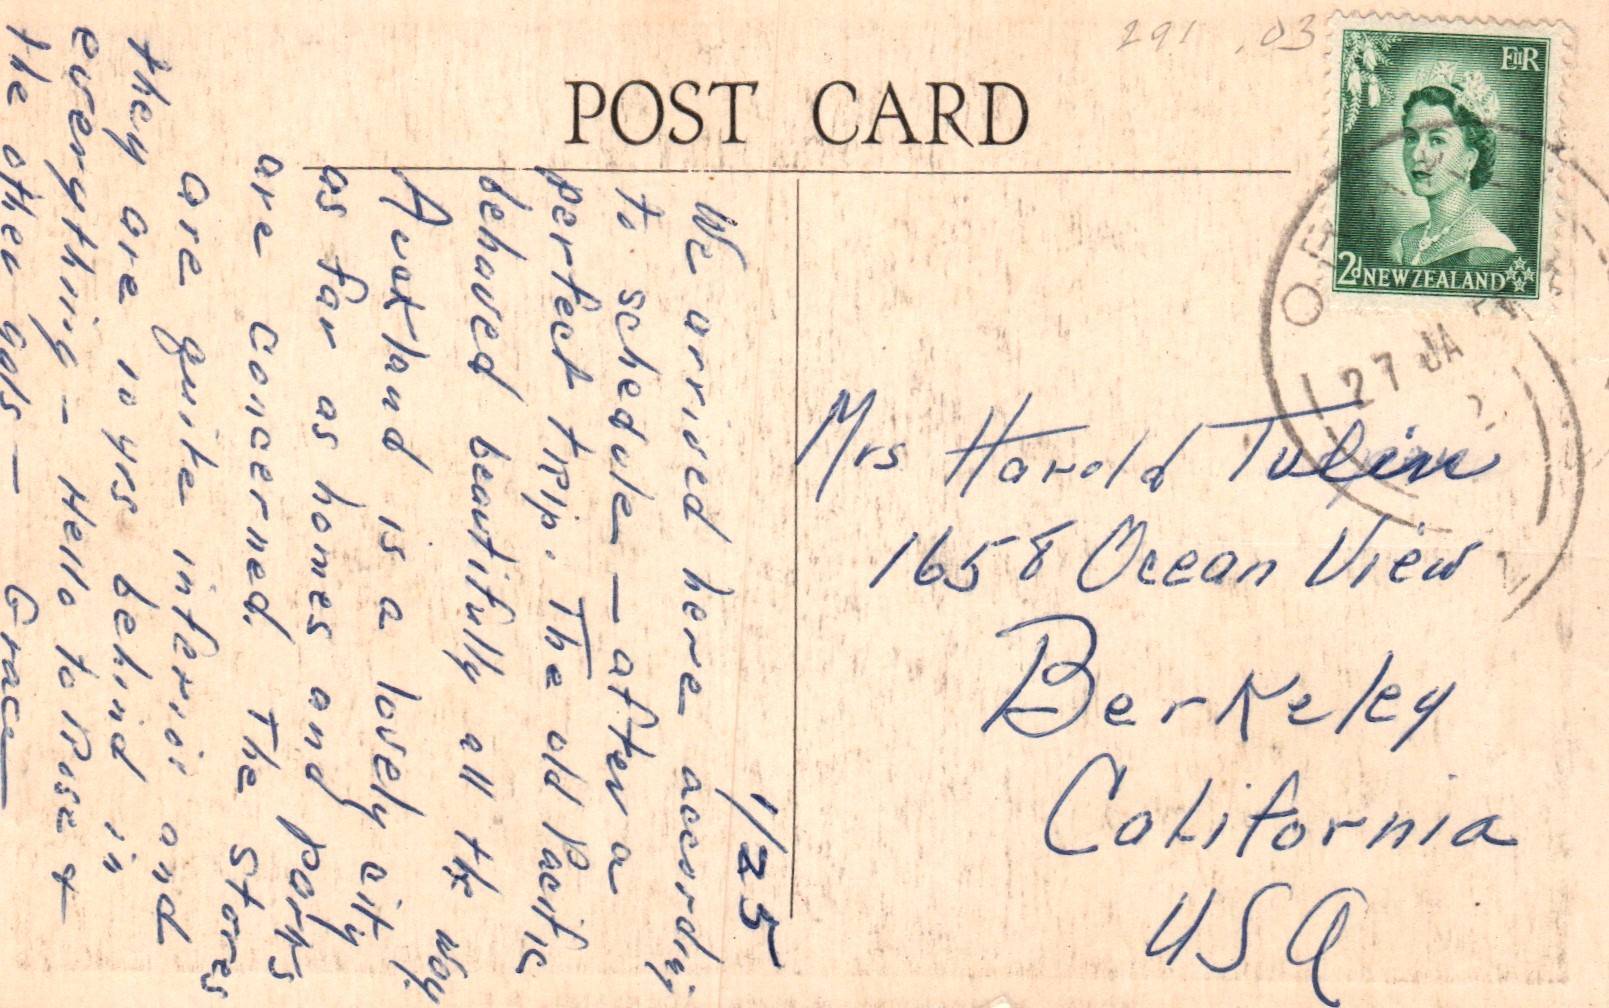 291 .03
POST CARD
EIIR
2d NEW ZEALAND
27 JA
1/25
We arrived here accordng
to schedule — after a
perfect trip. The old Pacific
behaved beautifully all the way.
Auckland is a lovely city
as far as homes and parks
are concerned. The stores
are quite inferior and
they are 10 yrs behind in
everything — Hello to Rose &
the other gals — Grace
Mrs Harold Tulin
1658 Ocean View
Berkeley
California
USA